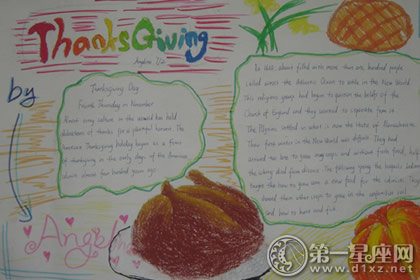 ThanksGiving
Angelina Liu
by
Thanksgiving Day
Fourth Thursday in November
Almost every culture in the world has held
celebrations of thanks for a plentiful harvest. The
American Thanksgiving holiday began as a feast
of thanksgiving in the early days of the American
almost four hundred years ago.
In 1620, a boat filled with more than one hundred people
sailed across the Atlantic Ocean to settle in the New World.
This religious group had begun to question the beliefs of the
Church of England and they wanted to separate from it.
The Pilgrims settled in what is now the state of Massachusetts.
Their first winter in the New World was difficult. They had
arrived too late to grow many crops, and without fresh food, half
the colony died from disease. The following spring the Iroquois Indians
taught them how to grow corn a new food for the colonists.
showed them other crops to grow in the unfamiliar soil
and how to hunt and fish.
第一星座网
www.d1xz.net